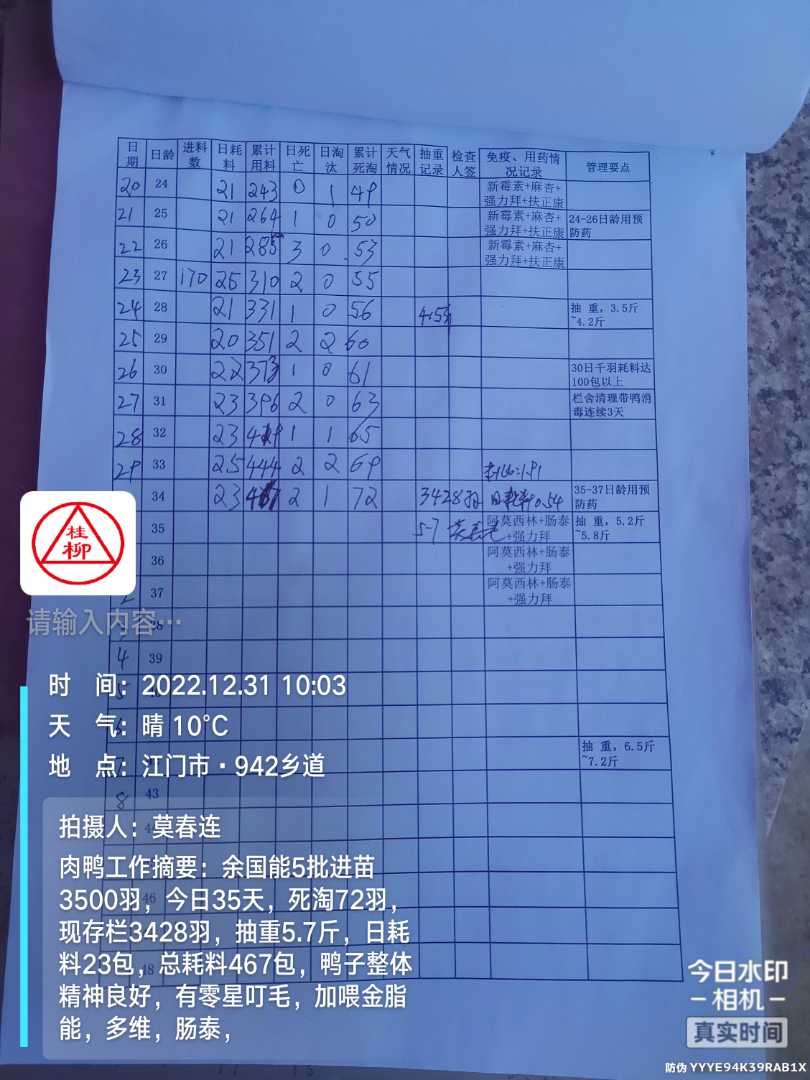 日期 日龄 进料数 日耗料 累计用料 日死亡 日淘汰 累计死淘 天气情况 抽重记录 检查人签 免疫、用药情况记录 管理要点
20 24 21 243 0 1 49 新霉素+麻杏+强力拜+扶正康
21 25 21 264 1 0 50 新霉素+麻杏+强力拜+扶正康 24-26日龄用预防药
22 26 21 285 3 0 53 新霉素+麻杏+强力拜+扶正康
23 27 170 25 310 2 0 55
24 28 21 331 1 0 56 抽 重，3.5斤~4.2斤
25 29 20 351 2 2 60
26 30 22 373 1 0 61 30日千羽耗料达100包以上
27 31 23 396 2 0 63 栏舍清理带鸭消毒连续3天
28 32 23 419 1 1 65
29 33 25 444 2 2 69
34 23 467 2 1 72 3428 0.54 35-37日龄用预防药
35 5.7 阿莫西林+肠泰+强力拜 抽 重，5.2斤~5.8斤
36 阿莫西林+肠泰+强力拜
37 阿莫西林+肠泰+强力拜
4 39
抽 重，6.5斤~7.2斤
8 43
46
48
桂
柳
请输入内容…
时 间：2022.12.31 10:03
天 气：晴 10℃
地 点：江门市·942乡道
拍摄人：莫春连
肉鸭工作摘要：余国能5批进苗
3500羽，今日35天，死淘72羽，
现存栏3428羽，抽重5.7斤，日耗
料23包，总耗料467包，鸭子整体
精神良好，有零星叮毛，加喂金脂
能，多维，肠泰，
今日水印
-相机-
真实时间
防伪 YYYE94K39RAB1X